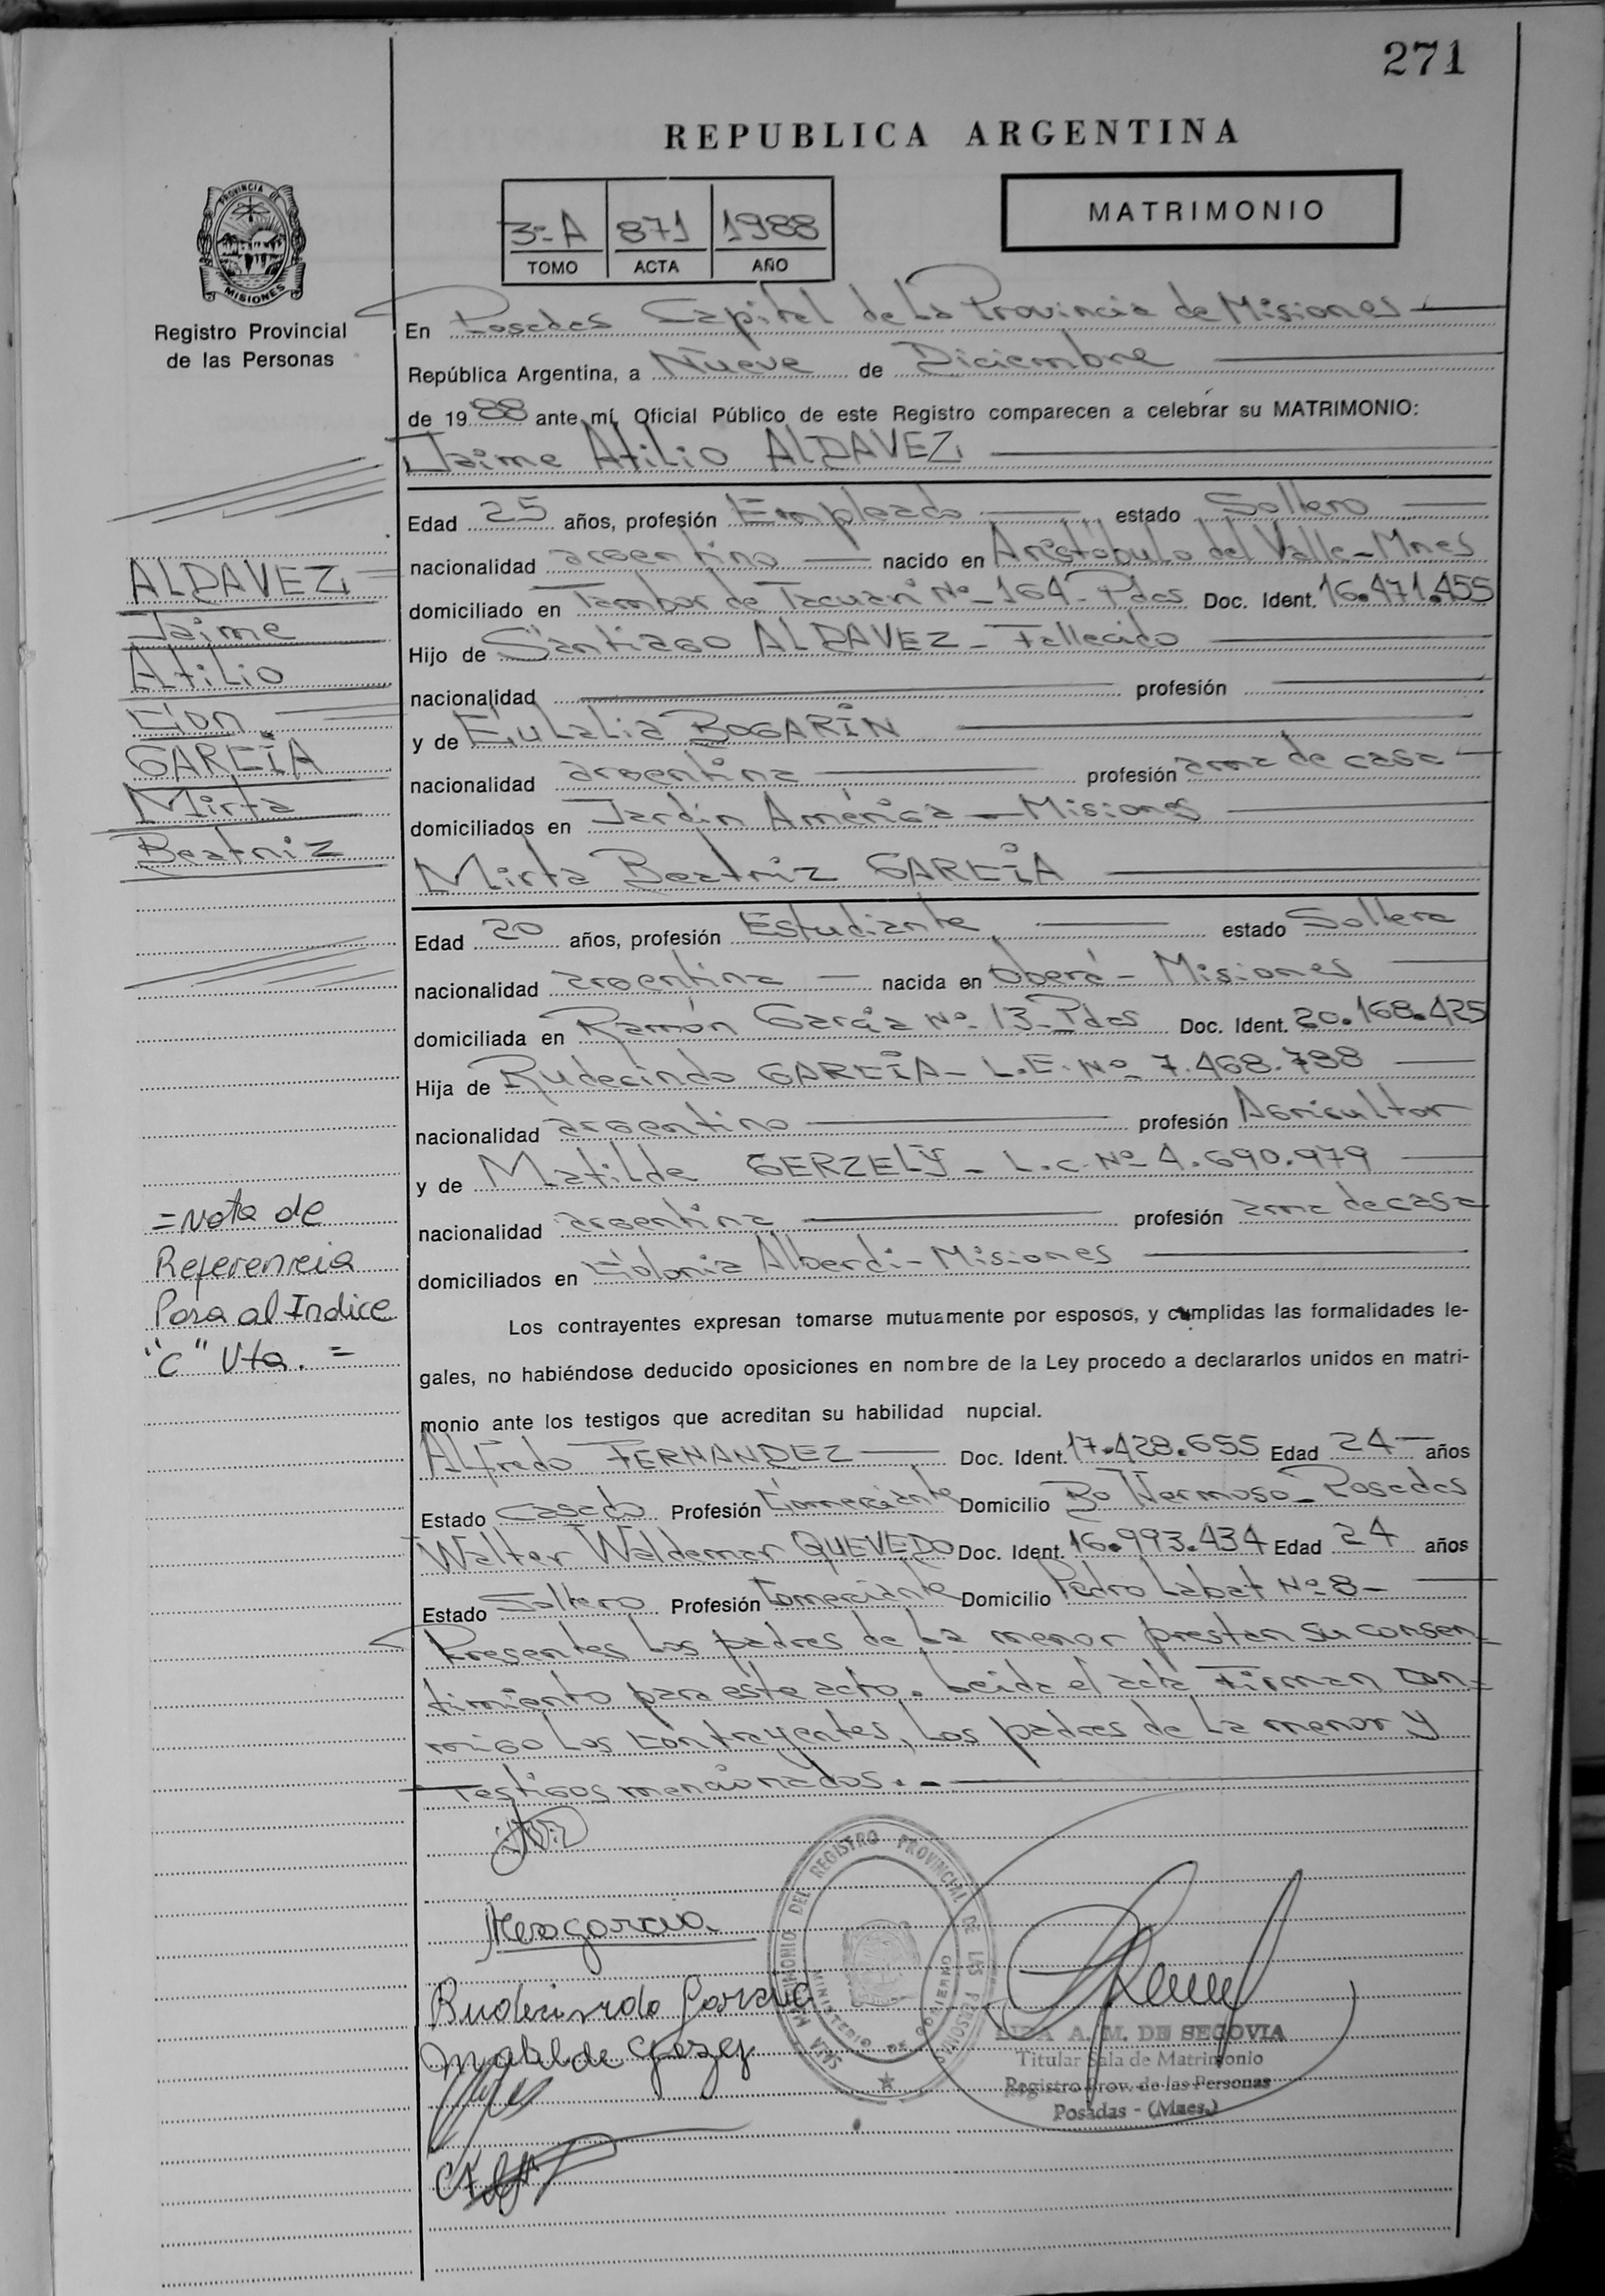 271
REPUBLICA ARGENTINA
PROVINCIA DE
MISIONES
Registro Provincial
de las Personas
3º A 871 1988
TOMO ACTA AÑO
MATRIMONIO
En Posadas Capital de La Provincia de Misiones
República Argentina, a Nueve de Diciembre
de 1988 ante mí, Oficial Público de este Registro comparecen a celebrar su MATRIMONIO:
Jaime Atilio ALDAVEZ
Edad 25 años, profesión Empleado estado Soltero
nacionalidad argentino nacido en Aristóbulo del Valle - Mnes
domiciliado en Tambor de Tacuarí Nº - 164 - Pdas Doc. Ident. 16.471.455
Hijo de Santiago ALDAVEZ - Fallecido
nacionalidad profesión
y de Eulalia BOGARÍN
nacionalidad argentina profesión ama de casa
domiciliados en Jardín América - Misiones
Mirta Beatriz GARCÍA
Edad 20 años, profesión Estudiante estado Soltera
nacionalidad argentina nacida en Oberá - Misiones
domiciliada en Ramón García Nº - 13 - Pdas Doc. Ident. 20.168.425
Hija de Rudecindo GARCÍA - L.E. Nº 7.468.798
nacionalidad argentino profesión Agricultor
y de Matilde GERZELY - L.C. Nº 4.690.979
nacionalidad argentina profesión ama de casa
domiciliados en Colonia Alberdi - Misiones
Los contrayentes expresan tomarse mutuamente por esposos, y cumplidas las formalidades le-
gales, no habiéndose deducido oposiciones en nombre de la Ley procedo a declararlos unidos en matri-
monio ante los testigos que acreditan su habilidad nupcial.
Alfredo FERNANDEZ Doc. Ident. 17.428.655 Edad 24 años
Estado Casado Profesión Comerciante Domicilio Bo Hermoso - Posadas
Walter Waldemar QUEVEDO Doc. Ident. 16.993.434 Edad 24 años
Estado Soltero Profesión Comerciante Domicilio Pedro Labat Nº 8 -
Presentes los padres de la menor prestan su consen-
timiento para este acto. Leida el acta Firman con-
migo los contrayentes, los padres de la menor y
Testigos mencionados. -
ALDAVEZ
Jaime
Atilio
Con
GARCÍA
Mirta
Beatriz
= Nota de
Referencia
Pasa al Indice
"C" Vta. =
Rudecindo Garcia
SALA MATRIMONIO DEL REGISTRO PROVINCIAL DE LAS PERSONAS
MINISTERIO DE GOBIERNO
A. M. DE SEGOVIA
Titular Sala de Matrimonio
Registro Prov. de las Personas
Posadas - (Mnes.)